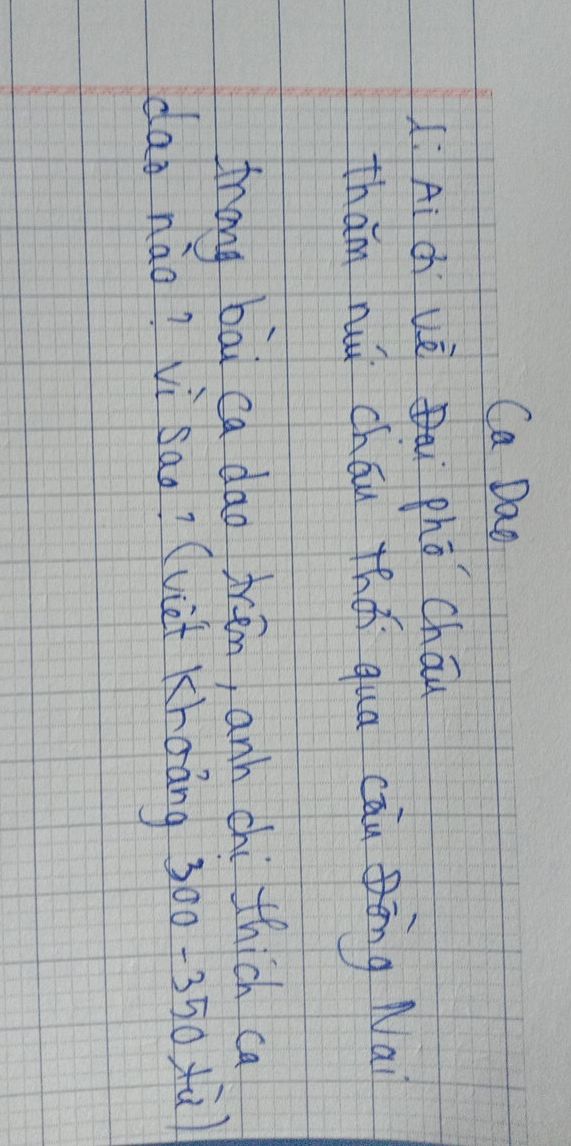 Ca Dao
1: Ai ơi về Đại phố châu
Thăm núi châu thới qua cầu Đồng Nai
trong bài ca dao trên, anh chị thích ca
dao nào? vì sao? (viết khoảng 300-350 từ)